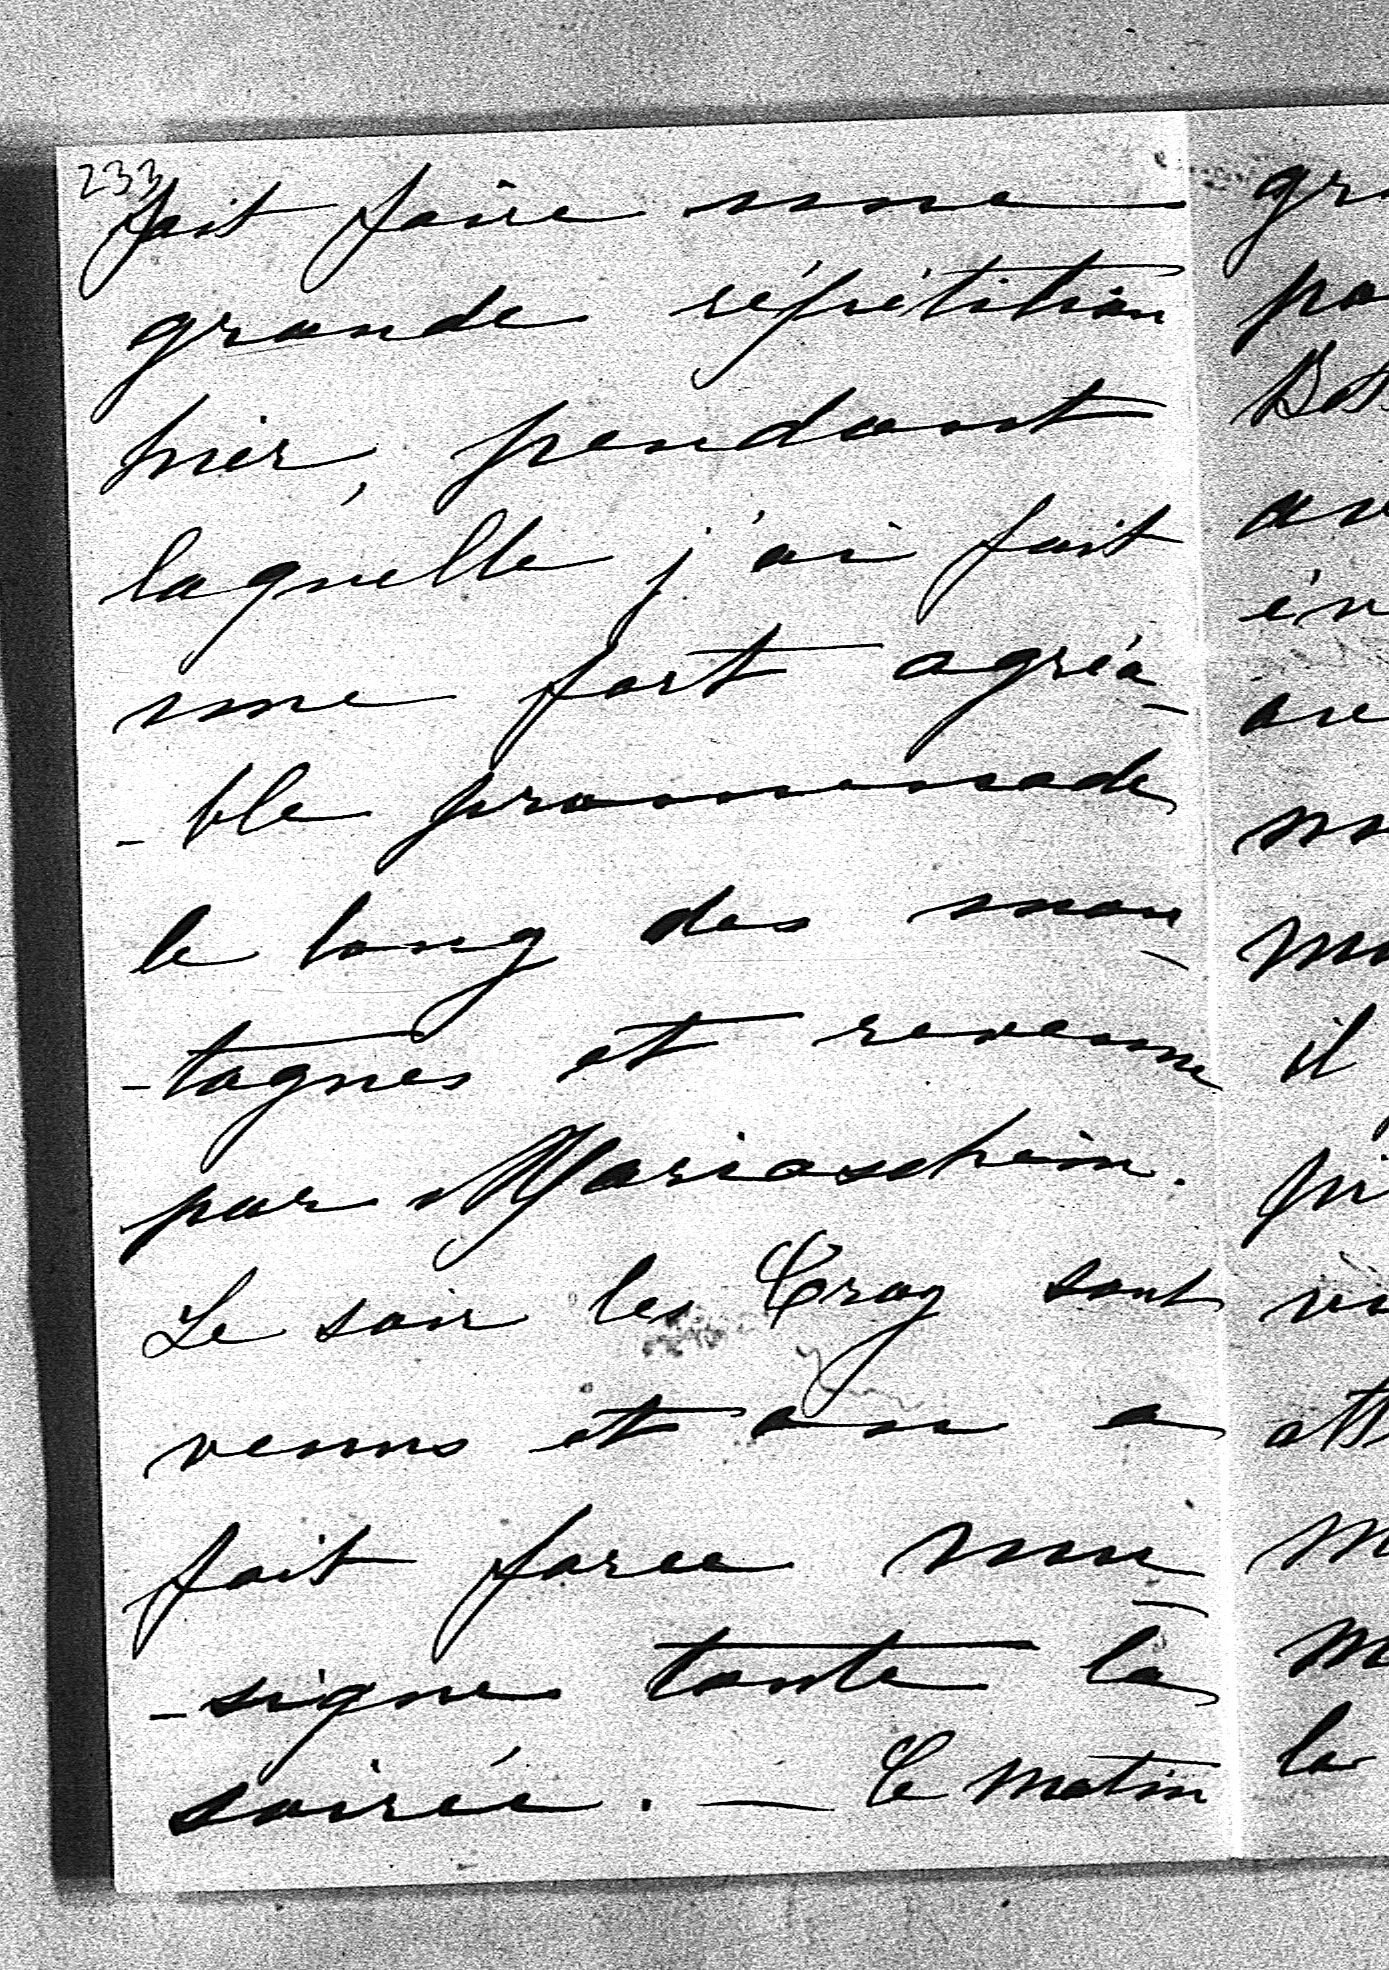 233
fait faire une
grande répétition
hier, pendant
laquelle j'ai fait
une fort agréa-
-ble promenade
le long des mon-
-tagnes et revenue
par Mariaschein.
Le soir les Croy sont
venus et on a
fait force mu-
-sique toute la
soirée. — Ce matin